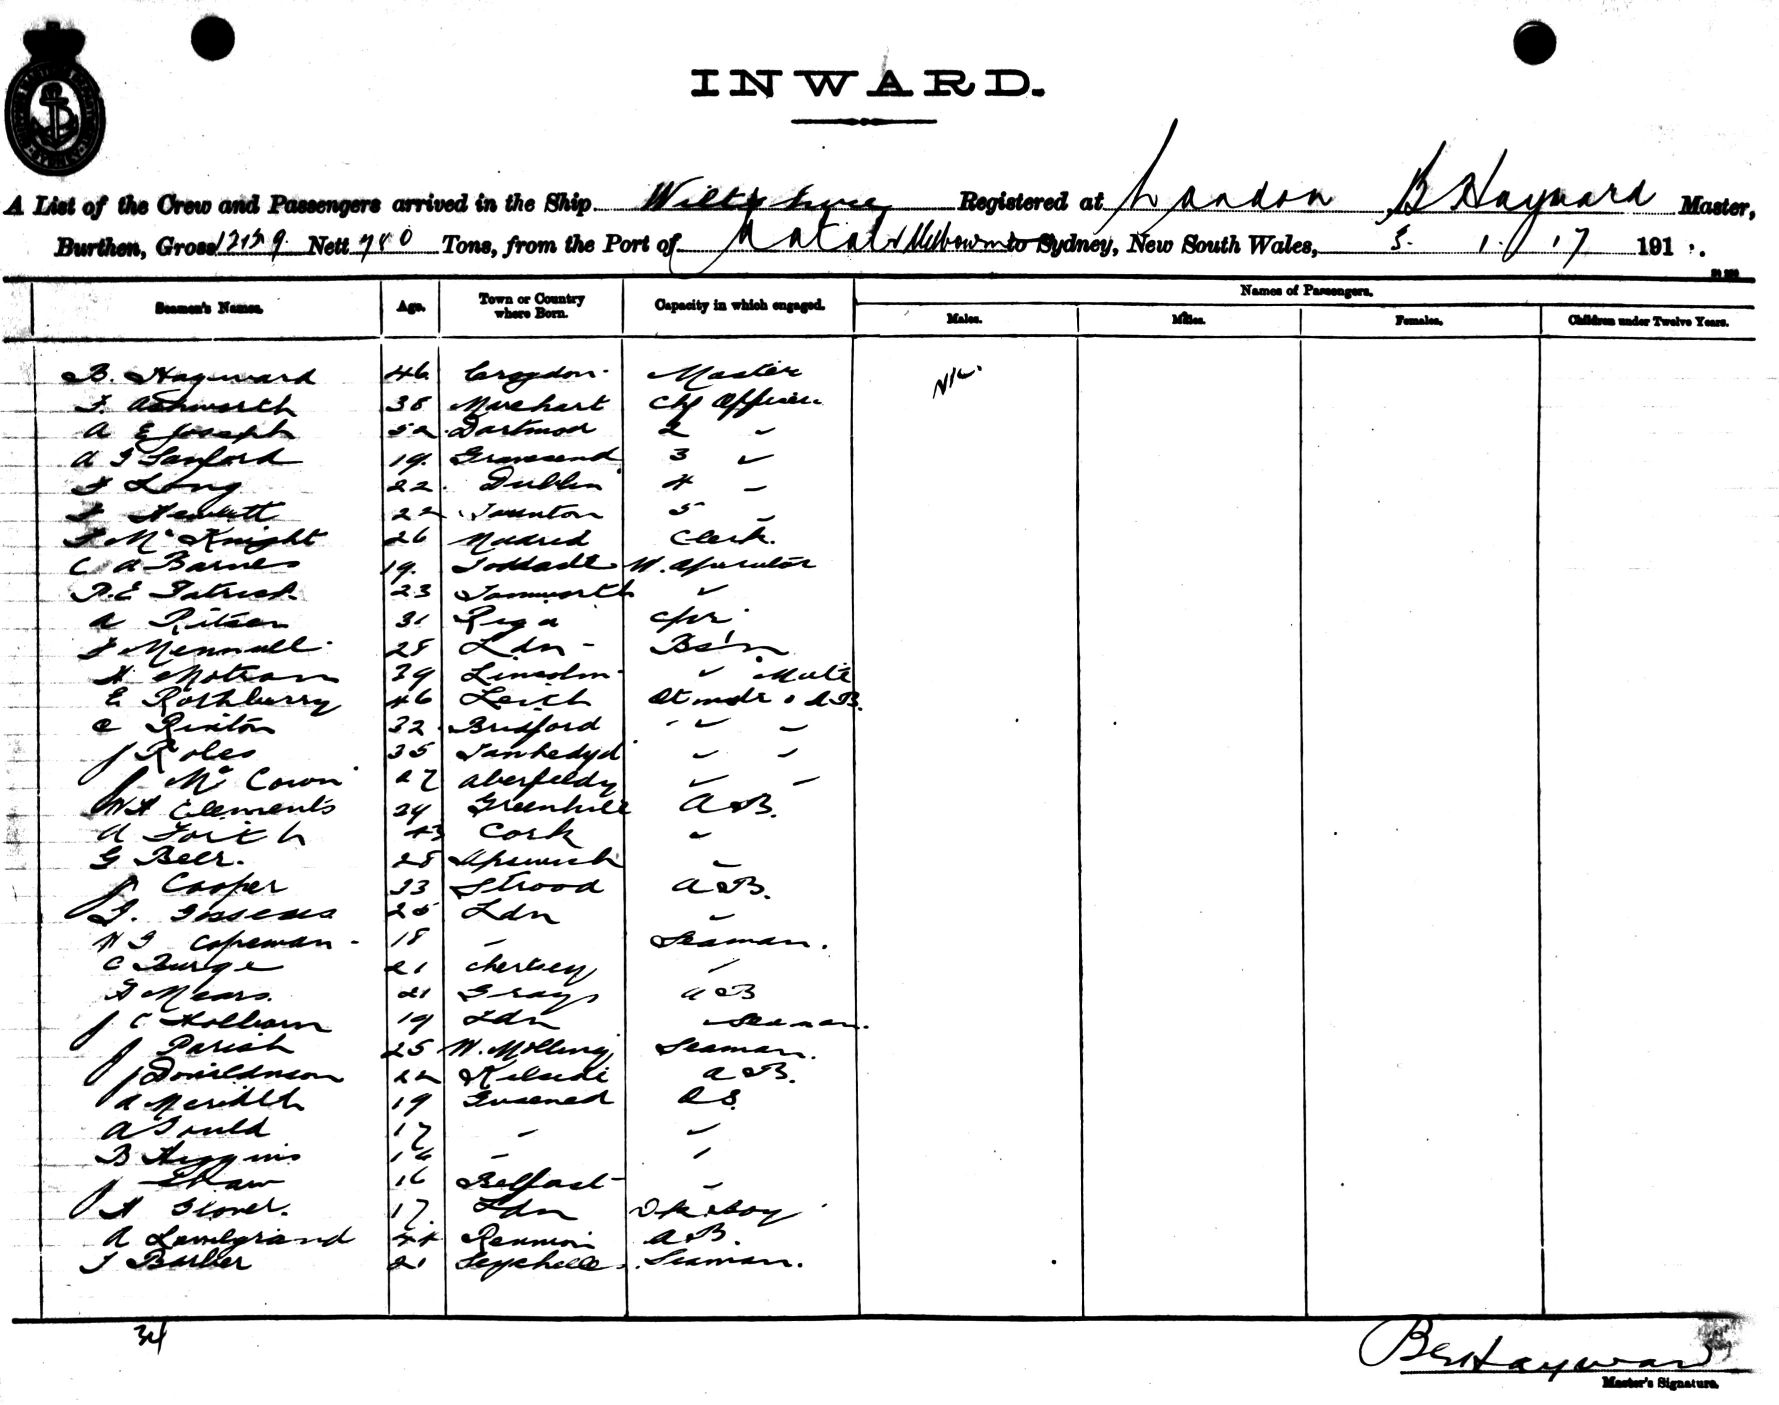 INWARD.
A List of the Crew and Passengers arrived in the Ship Wiltshire Registered at London B Hayward Master,
Burthen, Gross Nett 780 Tons, from the Port of Natal & Melbourne to Sydney, New South Wales, 3. 1. 17 191 .
Seamen's Names. Age. Town or Country where Born. Capacity in which engaged. Names of Passengers.
Males. Males. Females. Children under Twelve Years.
B. Hayward 46 Croydon Master Nil.
F. Ashworth 38 Chf Officer
A E Joseph 52 Dartmoor 2 "
A G Sanford 19. Gravesend 3 "
F Long 22 Dublin 4 "
F Hewlett 22 Taunton 5 "
F McKnight 26 Madrid Clerk.
C A Barnes 19. W. Operator
P. E. Patrick 23 Tamworth "
A Ritsen 31 Riga Cptr
F Mennell 28 Ldn - Bs'n
H Motram 39 Lincoln " Mate
E Rothberry 46 Leith & AB.
C Rixton 32 Bridford " "
J Roles 35 " "
J McCown 27 Aberfeldy " "
W H Clements 34 Greenhill A B.
A 43 Cork "
G Beer. 28 Ipswich "
J Cooper 33 Strood A B.
25 Ldn "
H G Copeman - 18 " Seaman.
C Burge 21 Chertsey "
G Mears. 21 Grays A B
J C Holborn 19 Ldn Seaman.
J Parish 25 W. Molling Seaman.
J Donaldnson 22 A B.
A Meridith 19 O S.
A Gould 17 " "
B Higgins "  "
J Shaw 16 Belfast "
H Glover. 17. Ldn Dk Boy
A 44 Reunion A B.
J Barber 21 Seychelles. Seaman.
34
B G Hayward
Master's Signature.